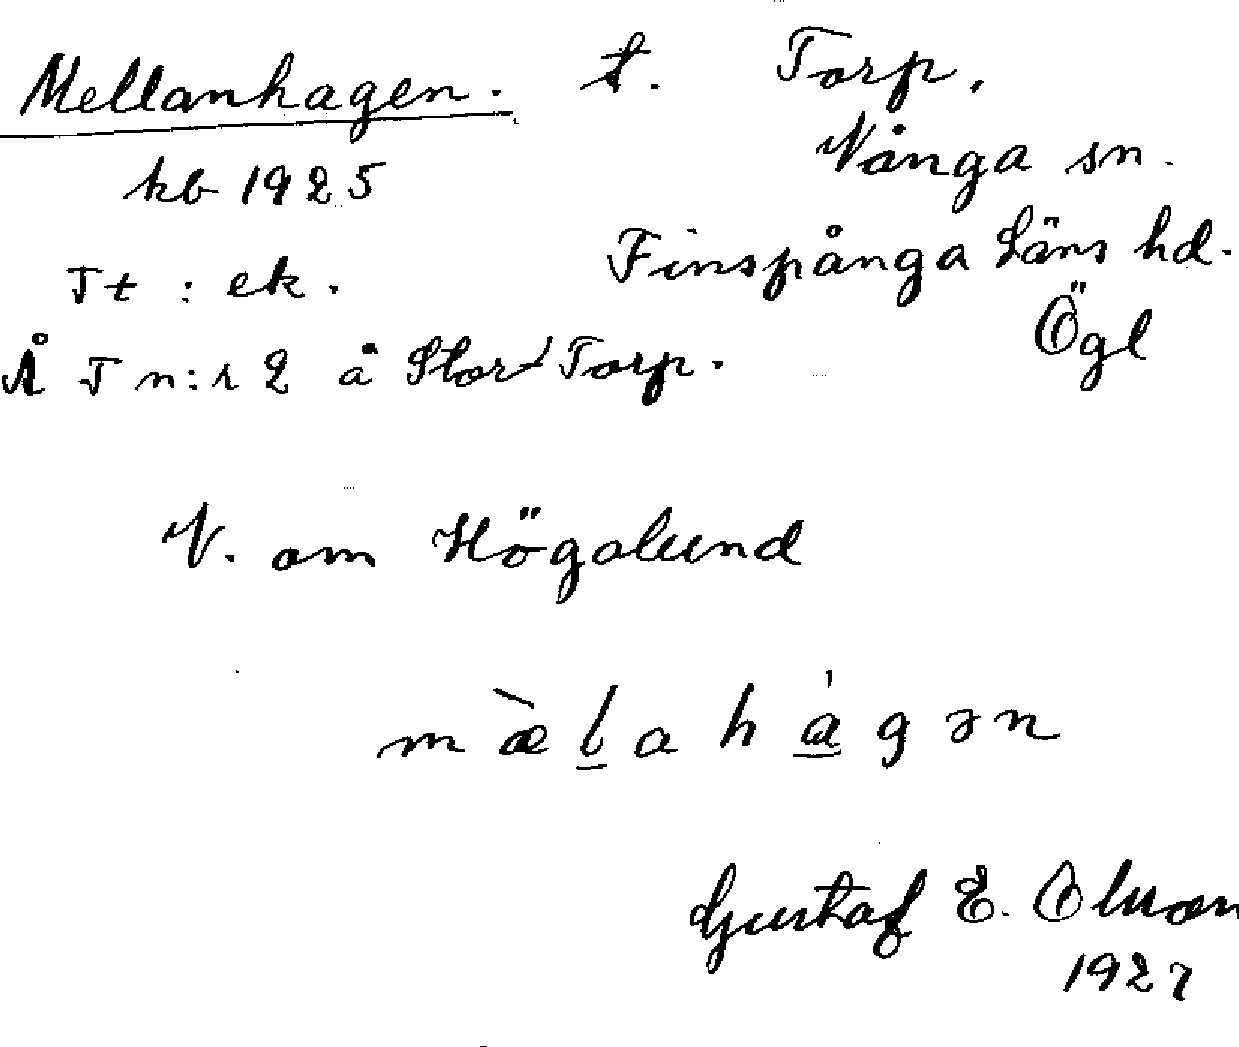 Mellanhagen. t. Torp,
Vånga sn.
kb 1925
Finspånga Läns hd.
Tt : ek.
Ögl
Å T n:r 2 å Stor Torp.
V. om Högalund
m æ̀ l̲ a h á̲ g ə n
Gustaf E. Olsson
1927